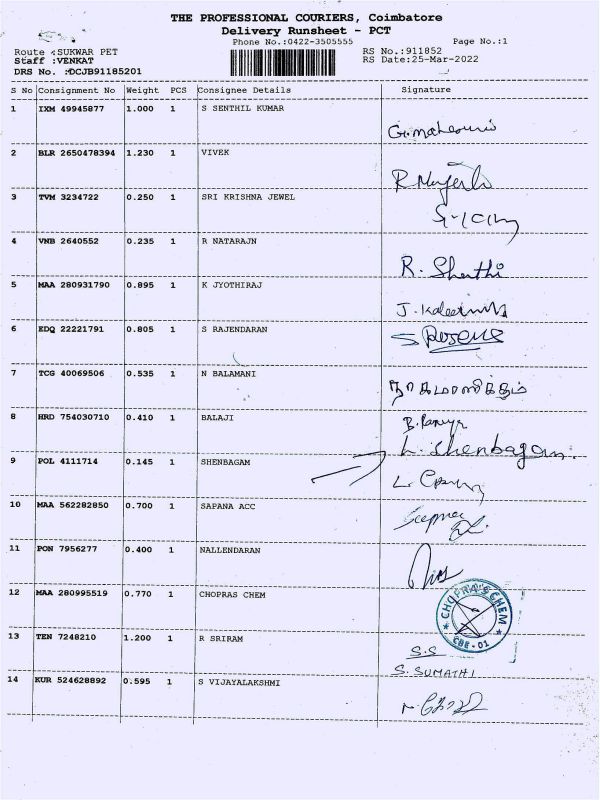 THE PROFESSIONAL COURIERS, Coimbatore
Delivery Runsheet - PCT
Phone No.:0422-3505555
Page No.:1
Route :SUKWAR PET
RS No.:911852
Staff :VENKAT
RS Date:25-Mar-2022
DRS No. :DCJB91185201
S No Consignment No Weight PCS Consignee Details Signature
1 IXM 49945877 1.000 1 S SENTHIL KUMAR
2 BLR 2650478394 1.230 1 VIVEK
3 TVM 3234722 0.250 1 SRI KRISHNA JEWEL
4 VNB 2640552 0.235 1 R NATARAJN
R. Shanthi
5 MAA 280931790 0.895 1 K JYOTHIRAJ
6 EDQ 22221791 0.805 1 S RAJENDARAN
7 TCG 40069506 0.535 1 N BALAMANI
நாகமாணிக்கம்
8 HRD 754030710 0.410 1 BALAJI
L. Shenbagam.
9 POL 4111714 0.145 1 SHENBAGAM
10 MAA 562282850 0.700 1 SAPANA ACC
11 PON 7956277 0.400 1 NALLENDARAN
12 MAA 280995519 0.770 1 CHOPRAS CHEM
CHOPRA'S CHEM
CBE - 01
13 TEN 7248210 1.200 1 R SRIRAM
S.S
S. SUMATHI
14 KUR 524628892 0.595 1 S VIJAYALAKSHMI